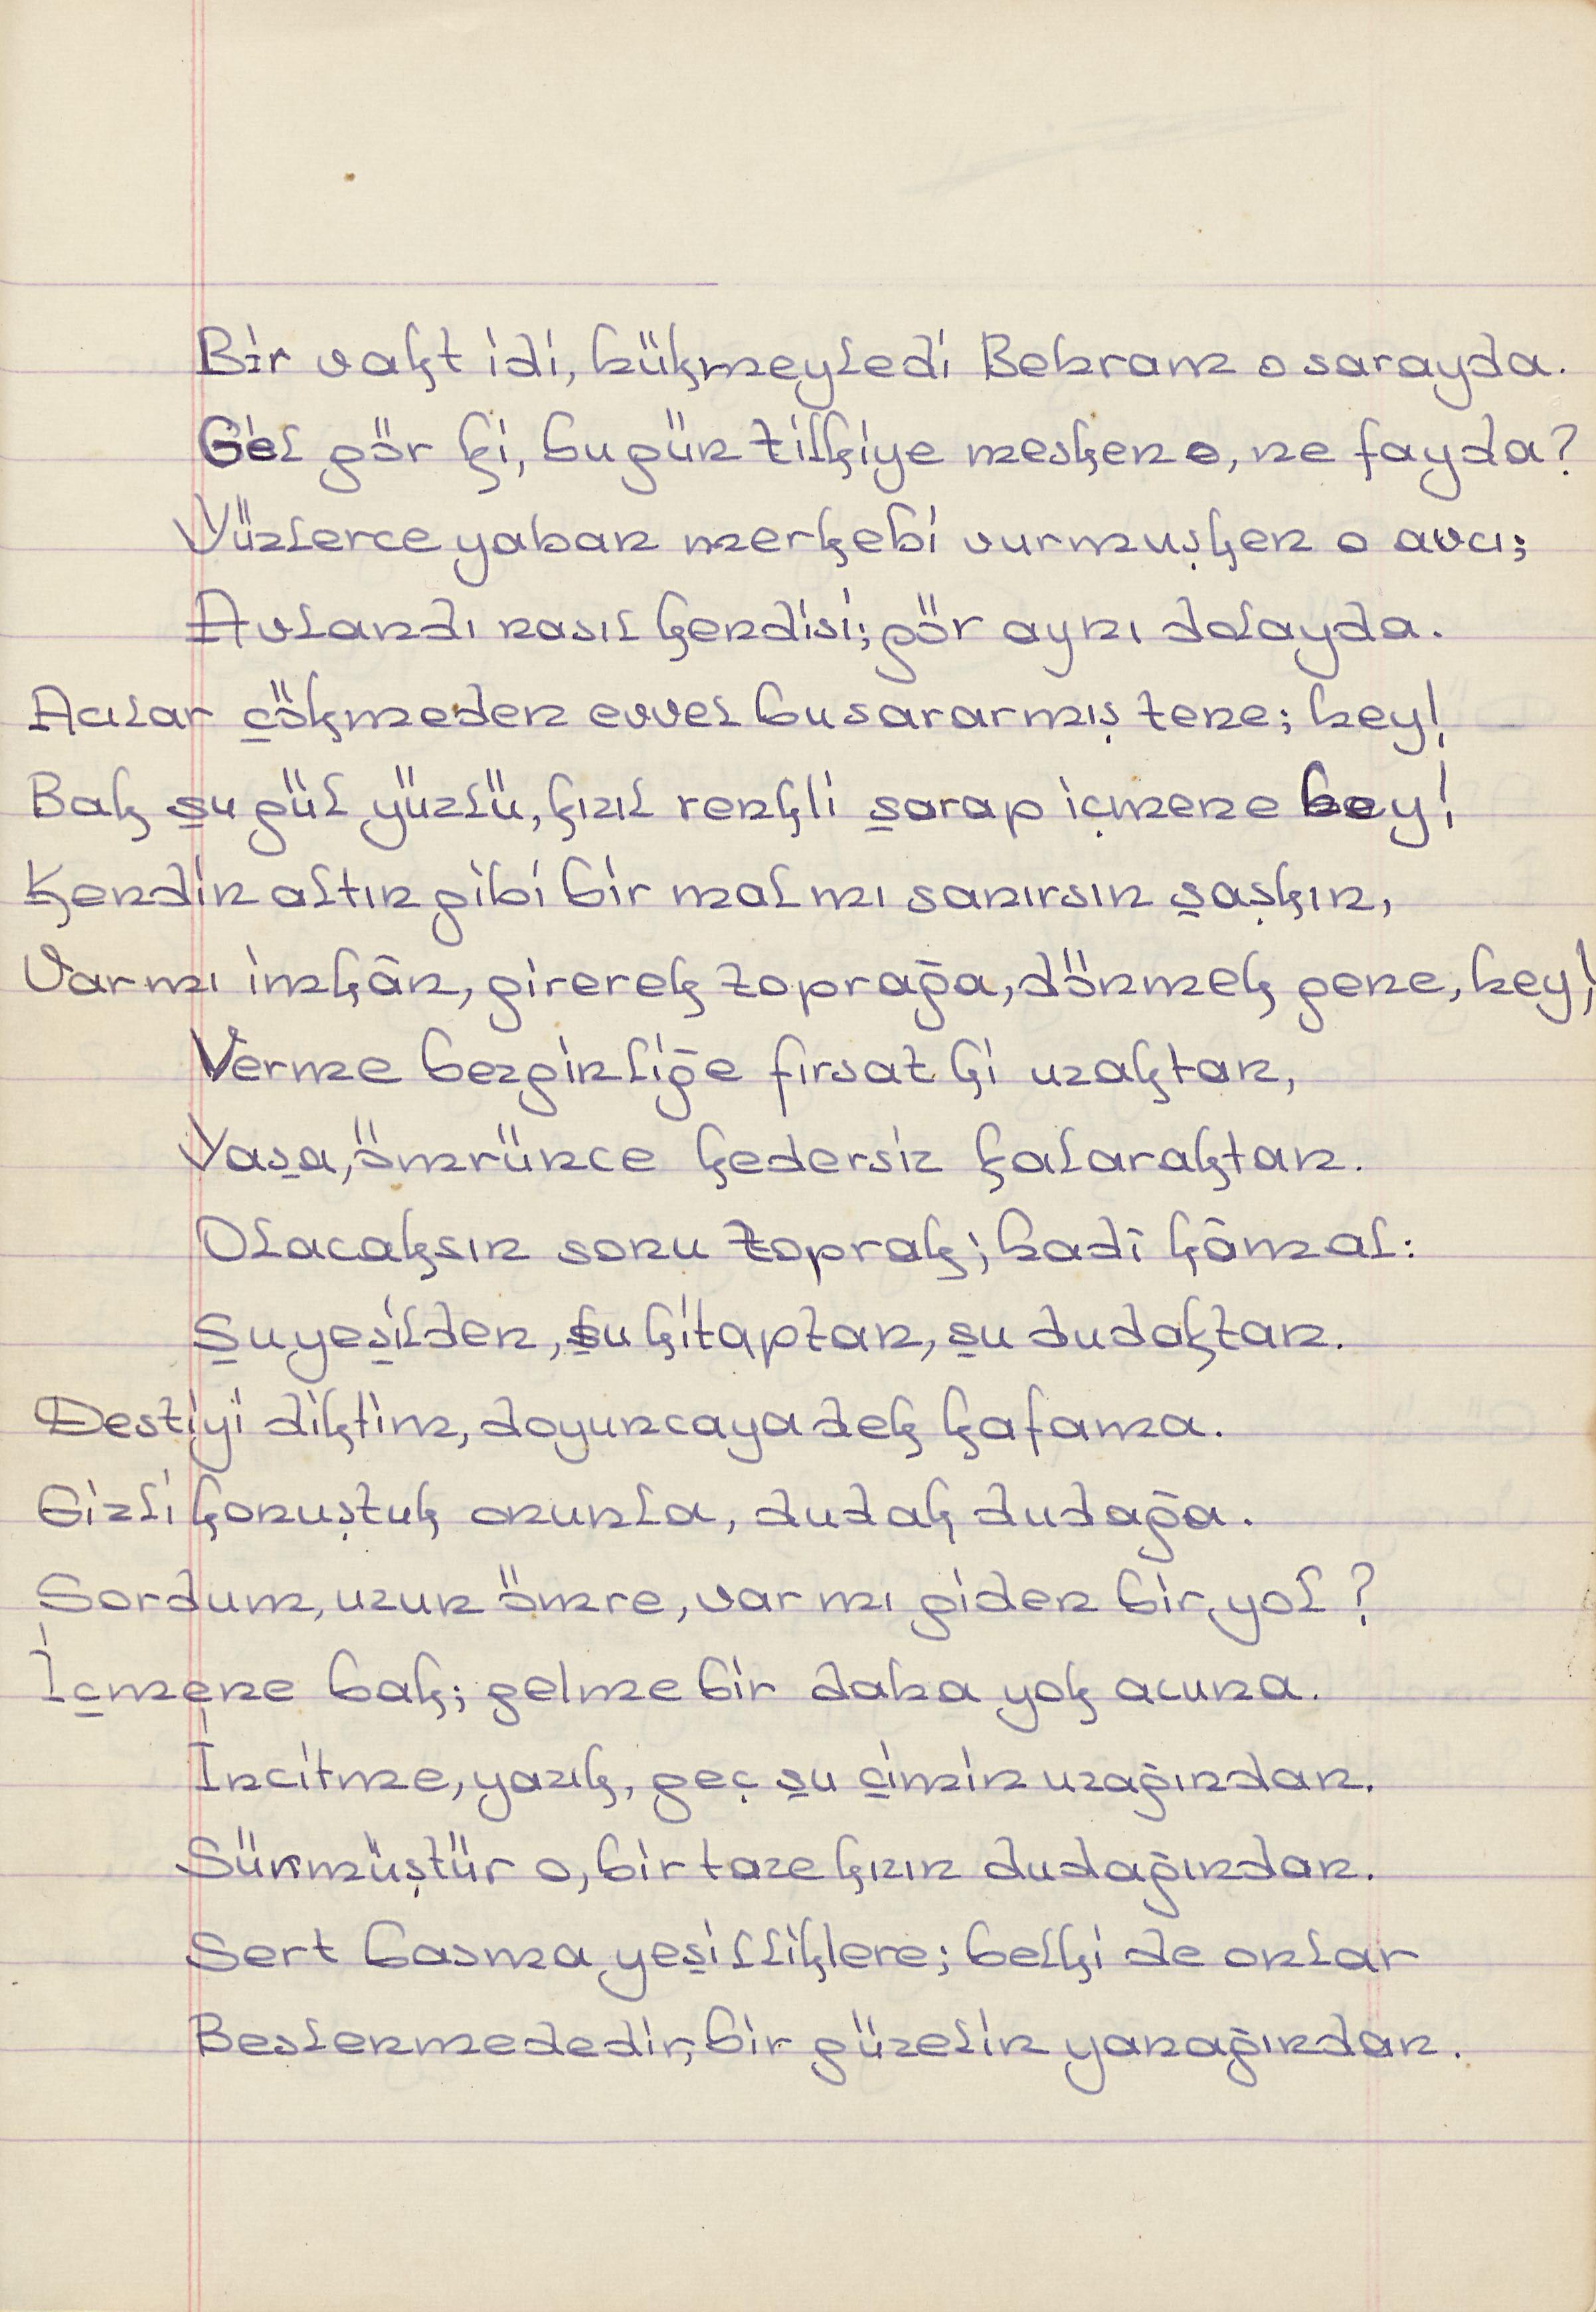 Bir vakt idi, hükmeyledi Behram o sarayda.
Gel gör ki, bugün tilkiye mesken o, ne fayda?
Yüzlerce yaban merkebi vurmuşken o avcı;
Avlandı nasıl kendisi; gör aynı dolayda.
Acılar çökmeden evvel bu sararmış tene; hey!
Bak şu gül yüzlü, kızıl renkli şarap içmene bey!
Kendin altın gibi bir mal mı sanırsın şaşkın,
Var mı imkân, girerek toprağa, dönmek gene, hey!
Verme bezginliğe fırsat ki uzaktan,
Yaşa, ömrünce kedersiz kalaraktan.
Olacaksın sonu toprak; hadi kâm al:
Şu yeşilden, şu kitaptan, şu dudaktan.
Destiyi diktim, doyuncaya dek kafama.
Gizli konuştuk onunla, dudak dudağa.
Sordum, uzun ömre, var mı giden bir yol?
İçmene bak; gelme bir daha yok acuna.
İncitme, yazık, geç şu çimin uzağından.
Sürmüştür o, bir taze kızın dudağından.
Sert basma yeşilliklere; belki de onlar
Beslenmededir, bir güzelin yanağından.